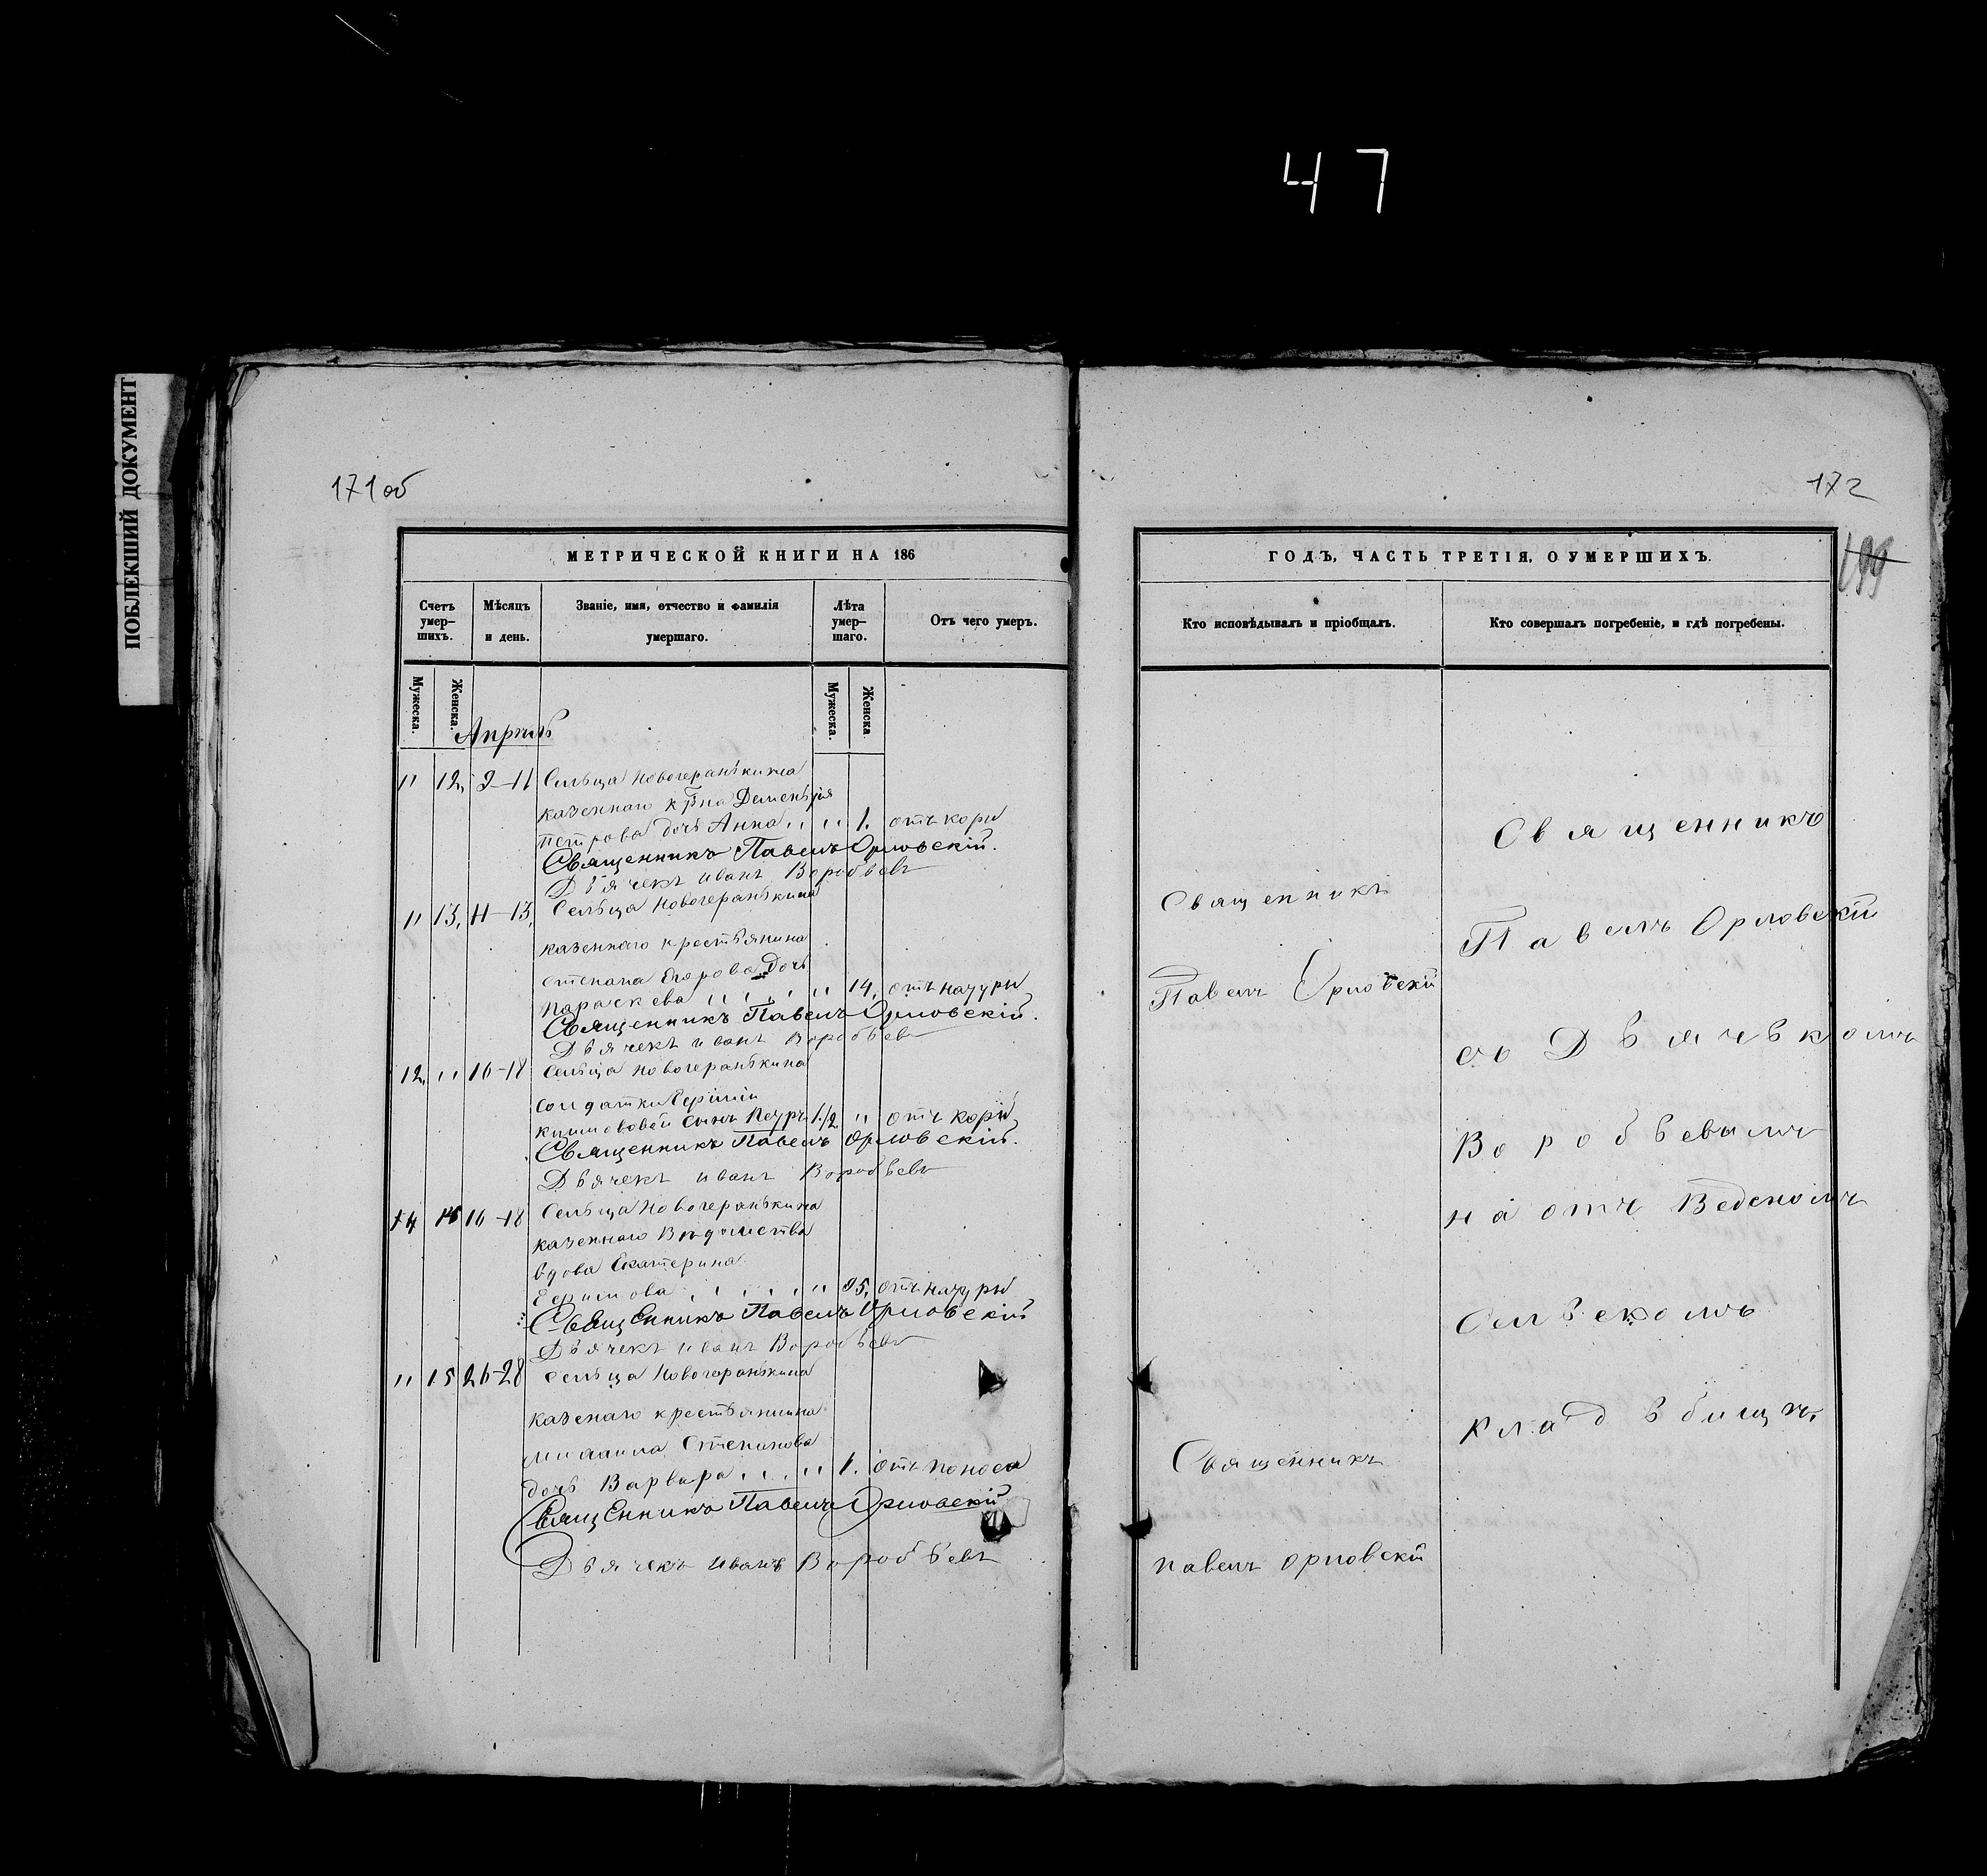 47
ПОБЛЕКШИЙ ДОКУМЕНТ
171 об
МЕТРИЧЕСКОЙ КНИГИ НА 186
Счетъ умер-шихъ.
Мѣсяцъ и день.
Званіе, имя, отчество и фамилія умершаго.
Лѣта умер-шаго.
Отъ чего умеръ.
Мужеска.
Женска.
Мужеска.
Женска
Апрель
" 12, 9–11 Сельца Новогеранькина
казеннаго кр-на Дементія
Петрова дочь Анна " " 1. отъ кори
Священникъ Павелъ Орловскій.
Дьячекъ иванъ Воробьевъ
" 13, 11–13, Сельца Новогеранькина
казеннаго крестьянина
степана Егорова Дочь
параскева " " " " 14, отъ натуры
Священникъ Павелъ Орловскій.
Дьячекъ иванъ Воробьев
12, " 16–18 Сельца новогеранькина
солдатки
сынъ 1/2 " отъ кори
Священникъ Павелъ Орловскій.
Дьячекъ иванъ Воробьевъ
14 16–18 Сельца Новогеранькина
казеннаго Ведомства
вдова Екатерина
Ефимова " " " 95, отъ натуры
СвящЕнникъ Павелъ Орловскій
Дьячекъ иванъ Воробьевъ
" 15 26–28 сельца Новогеранькина
казенаго крестьянина
михаила Степанова
дочь Варвара " " 1. отъ поноса
СвящЕнникъ Павелъ Орловскій
Дьячекъ Иванъ Воробьевъ
172
199
ГОДЪ, ЧАСТЬ ТРЕТІЯ, О УМЕРШИХЪ.
Кто исповѣдывалъ и пріобщалъ.
Кто совершалъ погребеніе, и гдѣ погребены.
Священникъ
Павелъ Орловскій
Священникъ
павелъ орловскій
Священникъ
Павелъ Орловскій
съ Дьячькомъ
Воробьевымъ
на отъ Веденомъ
Сельскомъ
кладьбищѣ,